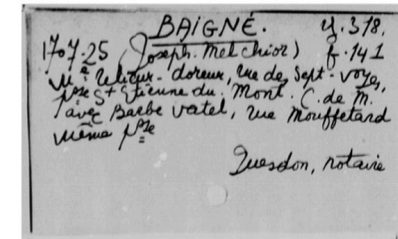 BAIGNÉ. y. 318.
1707.25 (Joseph. Melchior) f. 141
Md Relieur-doreur, rue des Sept-voyes,
psse St Etienne du Mont. C. de M.
avec Barbe Vatel, rue Mouffetard
même psse
Quesdon, notaire